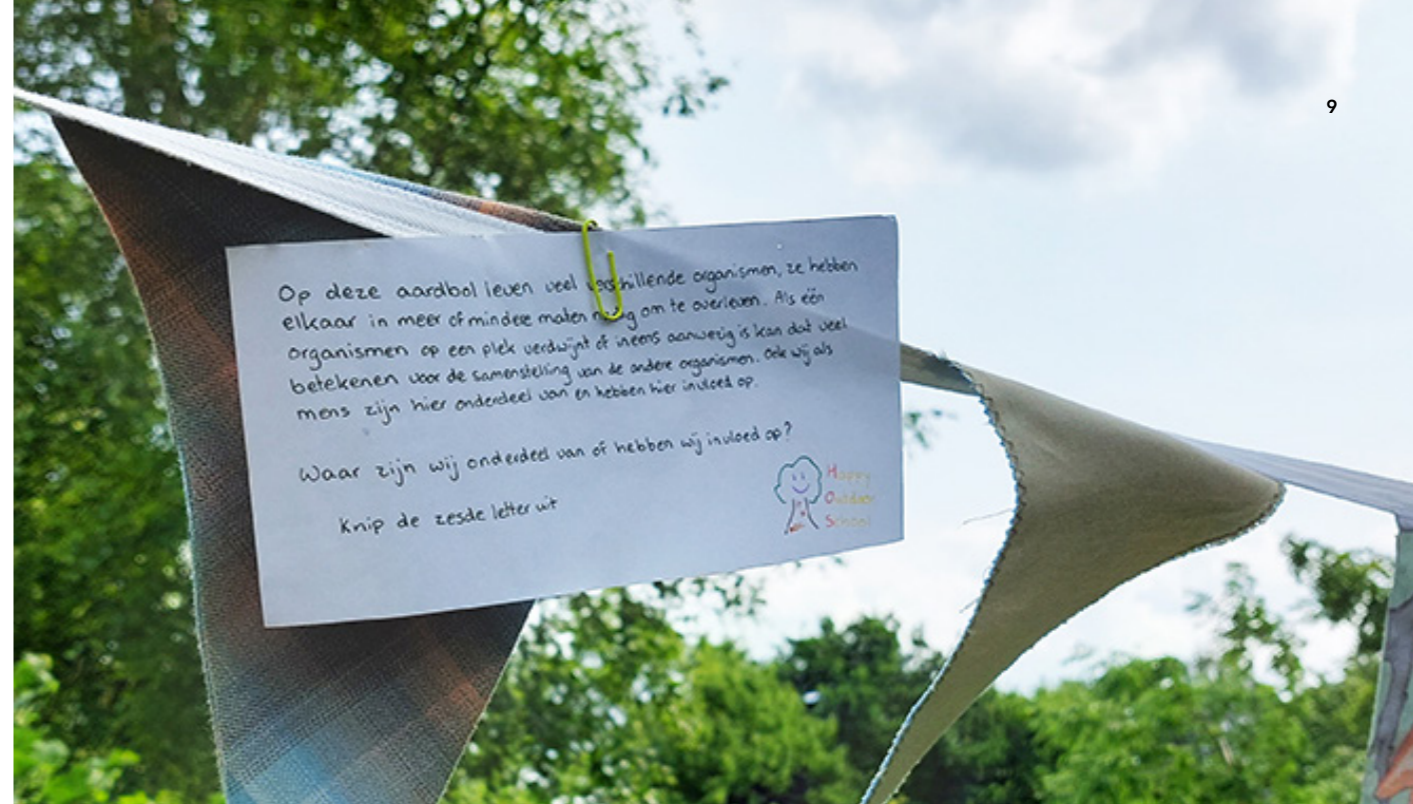 9
Op deze aardbol leven veel verschillende organismen, ze hebben
elkaar in meer of mindere maten nodig om te overleven. Als één
organismen op een plek verdwijnt of ineens aanwezig is kan dat veel
betekenen voor de samenstelling van de andere organismen. Ook wij als
mens zijn hier onderdeel van en hebben hier invloed op.
Waar zijn wij onderdeel van of hebben wij invloed op?
Knip de zesde letter uit
Happy
Outdoor
School